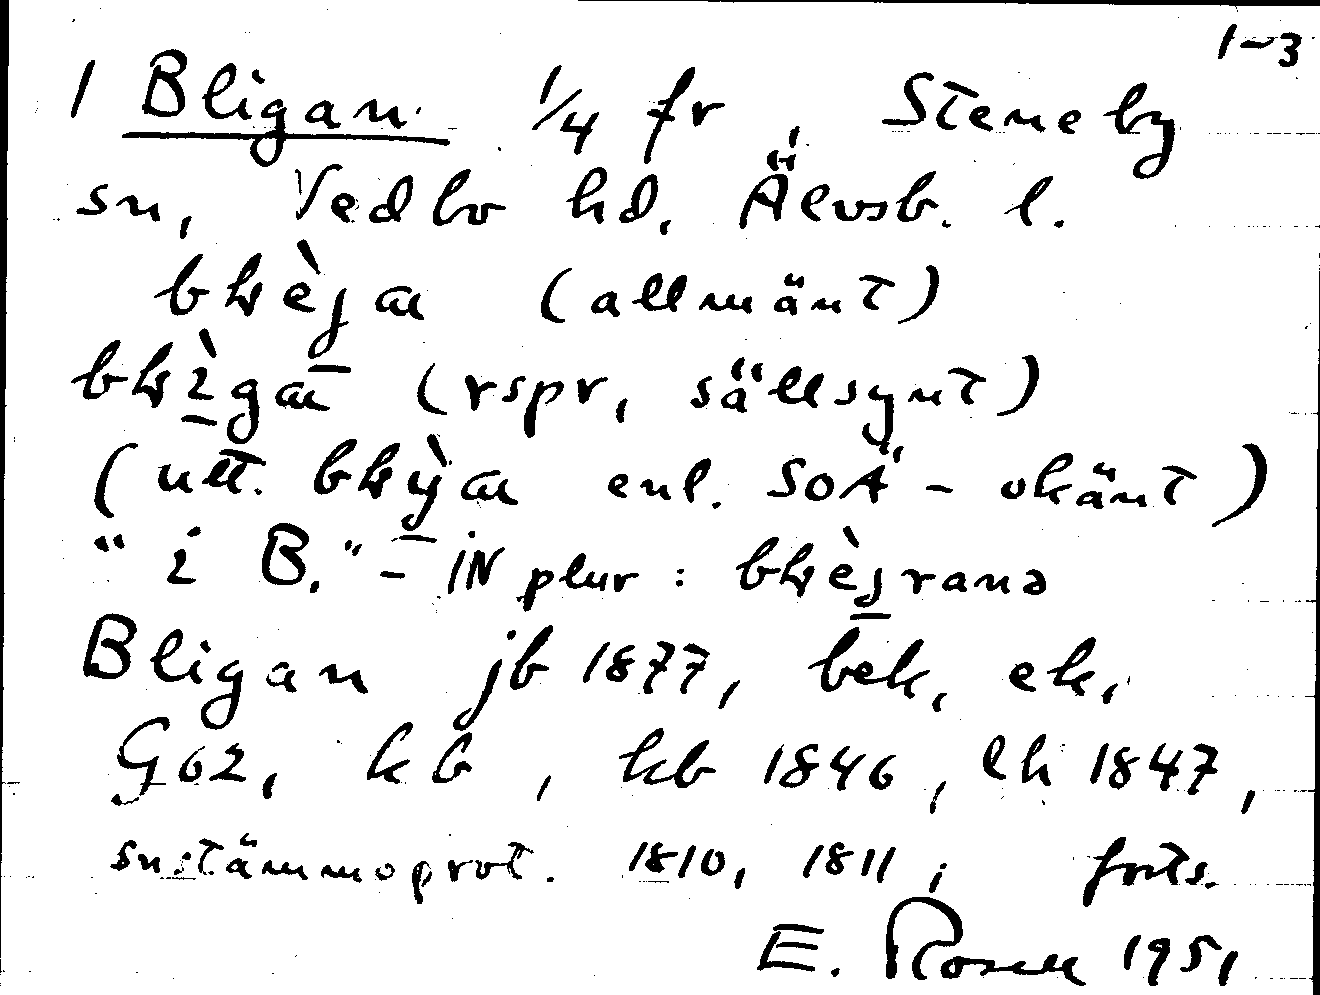 1-3
1 Bligan 1/4 fr, Steneby
sn, Vedbo hd, Älvsb. l.
(allmänt)
(rspr, sällsynt)
(utt. enl. SOÄ - okänt)
"i B." - IN plur:
Bligan jb 1877, bek, ek,
G62, kb, hb 1846, lh 1847,
snstämmoprot. 1810, 1811; forts.
E. Rosell 1951